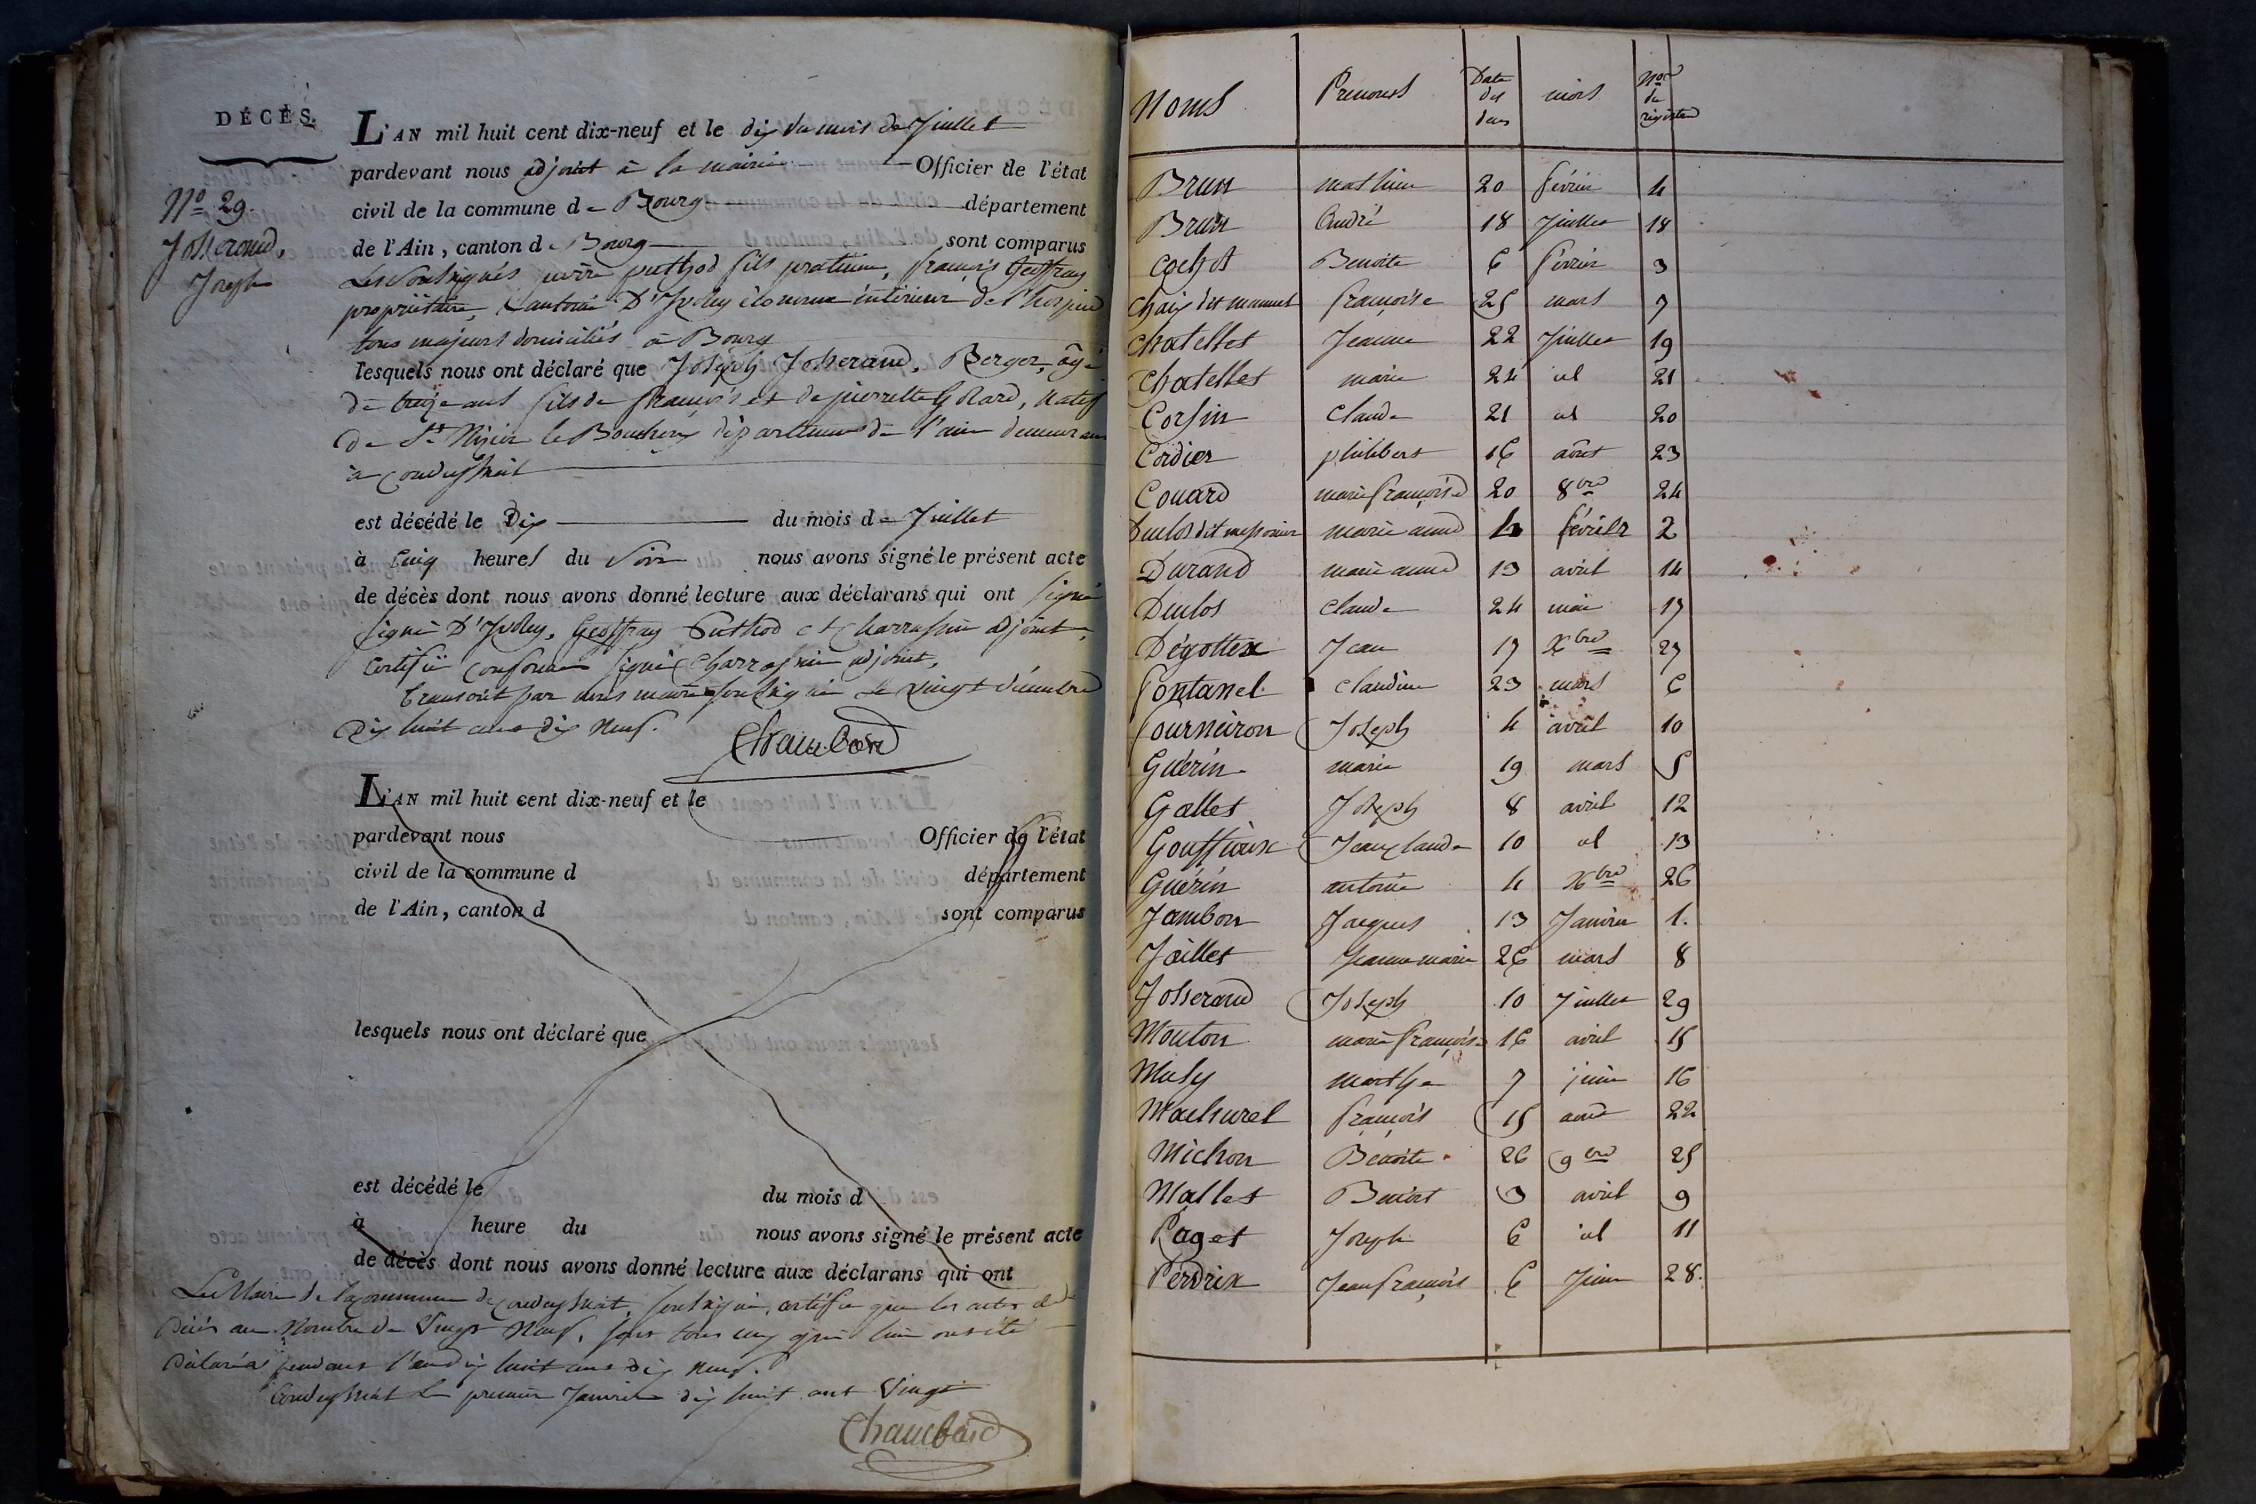 DÉCÈS.
Nº 29.
Josserand,
Joseph
L'AN mil huit cent dix-neuf et le dix du mois de Juillet
pardevant nous adjoint à la mairie Officier de l'état
civil de la commune de Bourg département
de l'Ain, canton de Bourg sont comparus
Les Soussignés puthod fils praticien, françois Geoffray
propriétaire, antoine D'Ivoley économe intérieur de l'hospice
tous majeurs domiciliés à Bourg
lesquels nous ont déclaré que Joseph Josserand, Berger, âgé
de treize ans fils de françois et de pierrette Golard, natif
de St Nizier le Bouchoux département de l'ain demeurant
à condeyssiat
est décédé le Dix du mois de Juillet
à Cinq heures du Soir nous avons signé le présent acte
de décès dont nous avons donné lecture aux déclarans qui ont signé
signé D'Ivoley, Geoffray Puthod et Charrassin adjoint,
certifié conforme signé Charrassin adjoint,
transcrit par nous maire soussigné le vingt décembre
Dix huit cent dix Neuf.
Chambard
L'AN mil huit cent dix-neuf et le
pardevant nous Officier de l'état
civil de la commune d département
de l'Ain, canton d sont comparus
lesquels nous ont déclaré que
est décédé le du mois d
à heure du nous avons signé le présent acte
de décès dont nous avons donné lecture aux déclarans qui ont
Le Maire de la commune de Condeyssiat, soussigné, certifie que les actes de
Décès au Nombre de Vingt Neuf, sont tous ceux qui lui ont été
Déclarés pendant l'an dix huit cent dix neuf.
Condeyssiat Le premier Janvier dix huit cent Vingt
Chambard
Noms Prenoms Date des deces mois Nos de registre
Brun mathieu 20 février 4
Brun André 18 Juillet 18
Cochet Benoite 6 février 3
Chaix dit mamet françoise 25 mars 7
Chatellet Jeanne 22 Juillet 19
Chatellet marie 24 id 21
Corsin Claude 21 id 20
Cordier philibert 16 août 23
Couard marie françoise 20 8bre 24
Duclos dit messonier marie anne 4 février 2
Durand marie anne 13 avril 14
Duclos Claude 24 mai 17
Dégottex Jean 17 Xbre 27
fontanel Claudine 23 mars 6
fourneiron Joseph 4 avril 10
Guérin marie 19 mars 5
Gallet Joseph 8 avril 12
Gouffioux Jean claude 10 id 13
Guérin antoine 4 Xbre 26
Jambon Jacques 13 Janvier 1.
Jaillet Jeanne marie 26 mars 8
Josserand Joseph 10 Juillet 29
Mouton marie françoise 16 avril 15
Musy marthe 7 juin 16
Machurel françois 15 août 22
Michon Benoite 26 9bre 25
Mallet Benoit 3 avril 9
Paget Joseph 6 id 11
Perdrix Jean françois 6 Juin 28.